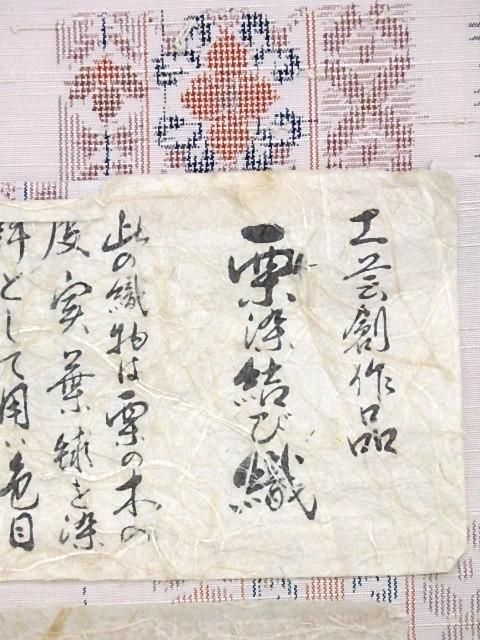 工芸創作品
栗染結び織
此の織物は栗の木の
皮実葉毬を染
料として用い色目